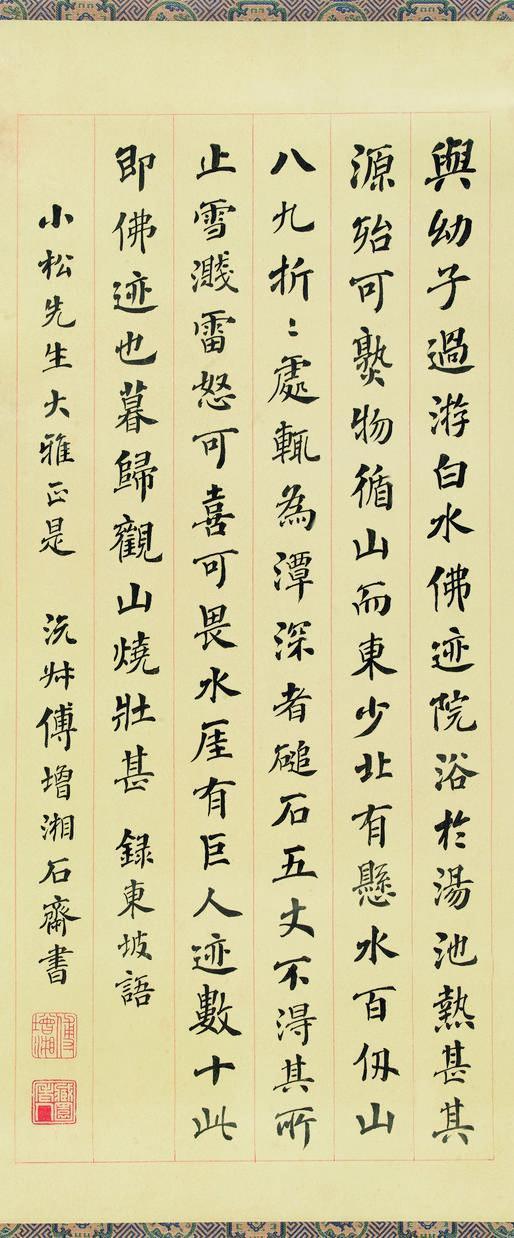 與幼子過游白水佛迹院浴於湯池熱甚其
源殆可爇物循山而東少北有懸水百仞山
八九折〻處輒為潭深者磓石五丈不得其所
止雪濺雷怒可喜可畏水厓有巨人迹數十此
即佛迹也暮歸觀山燒壯甚 錄東坡語
小松先生大雅正是 沅叔傅增湘石齋書
傅增湘